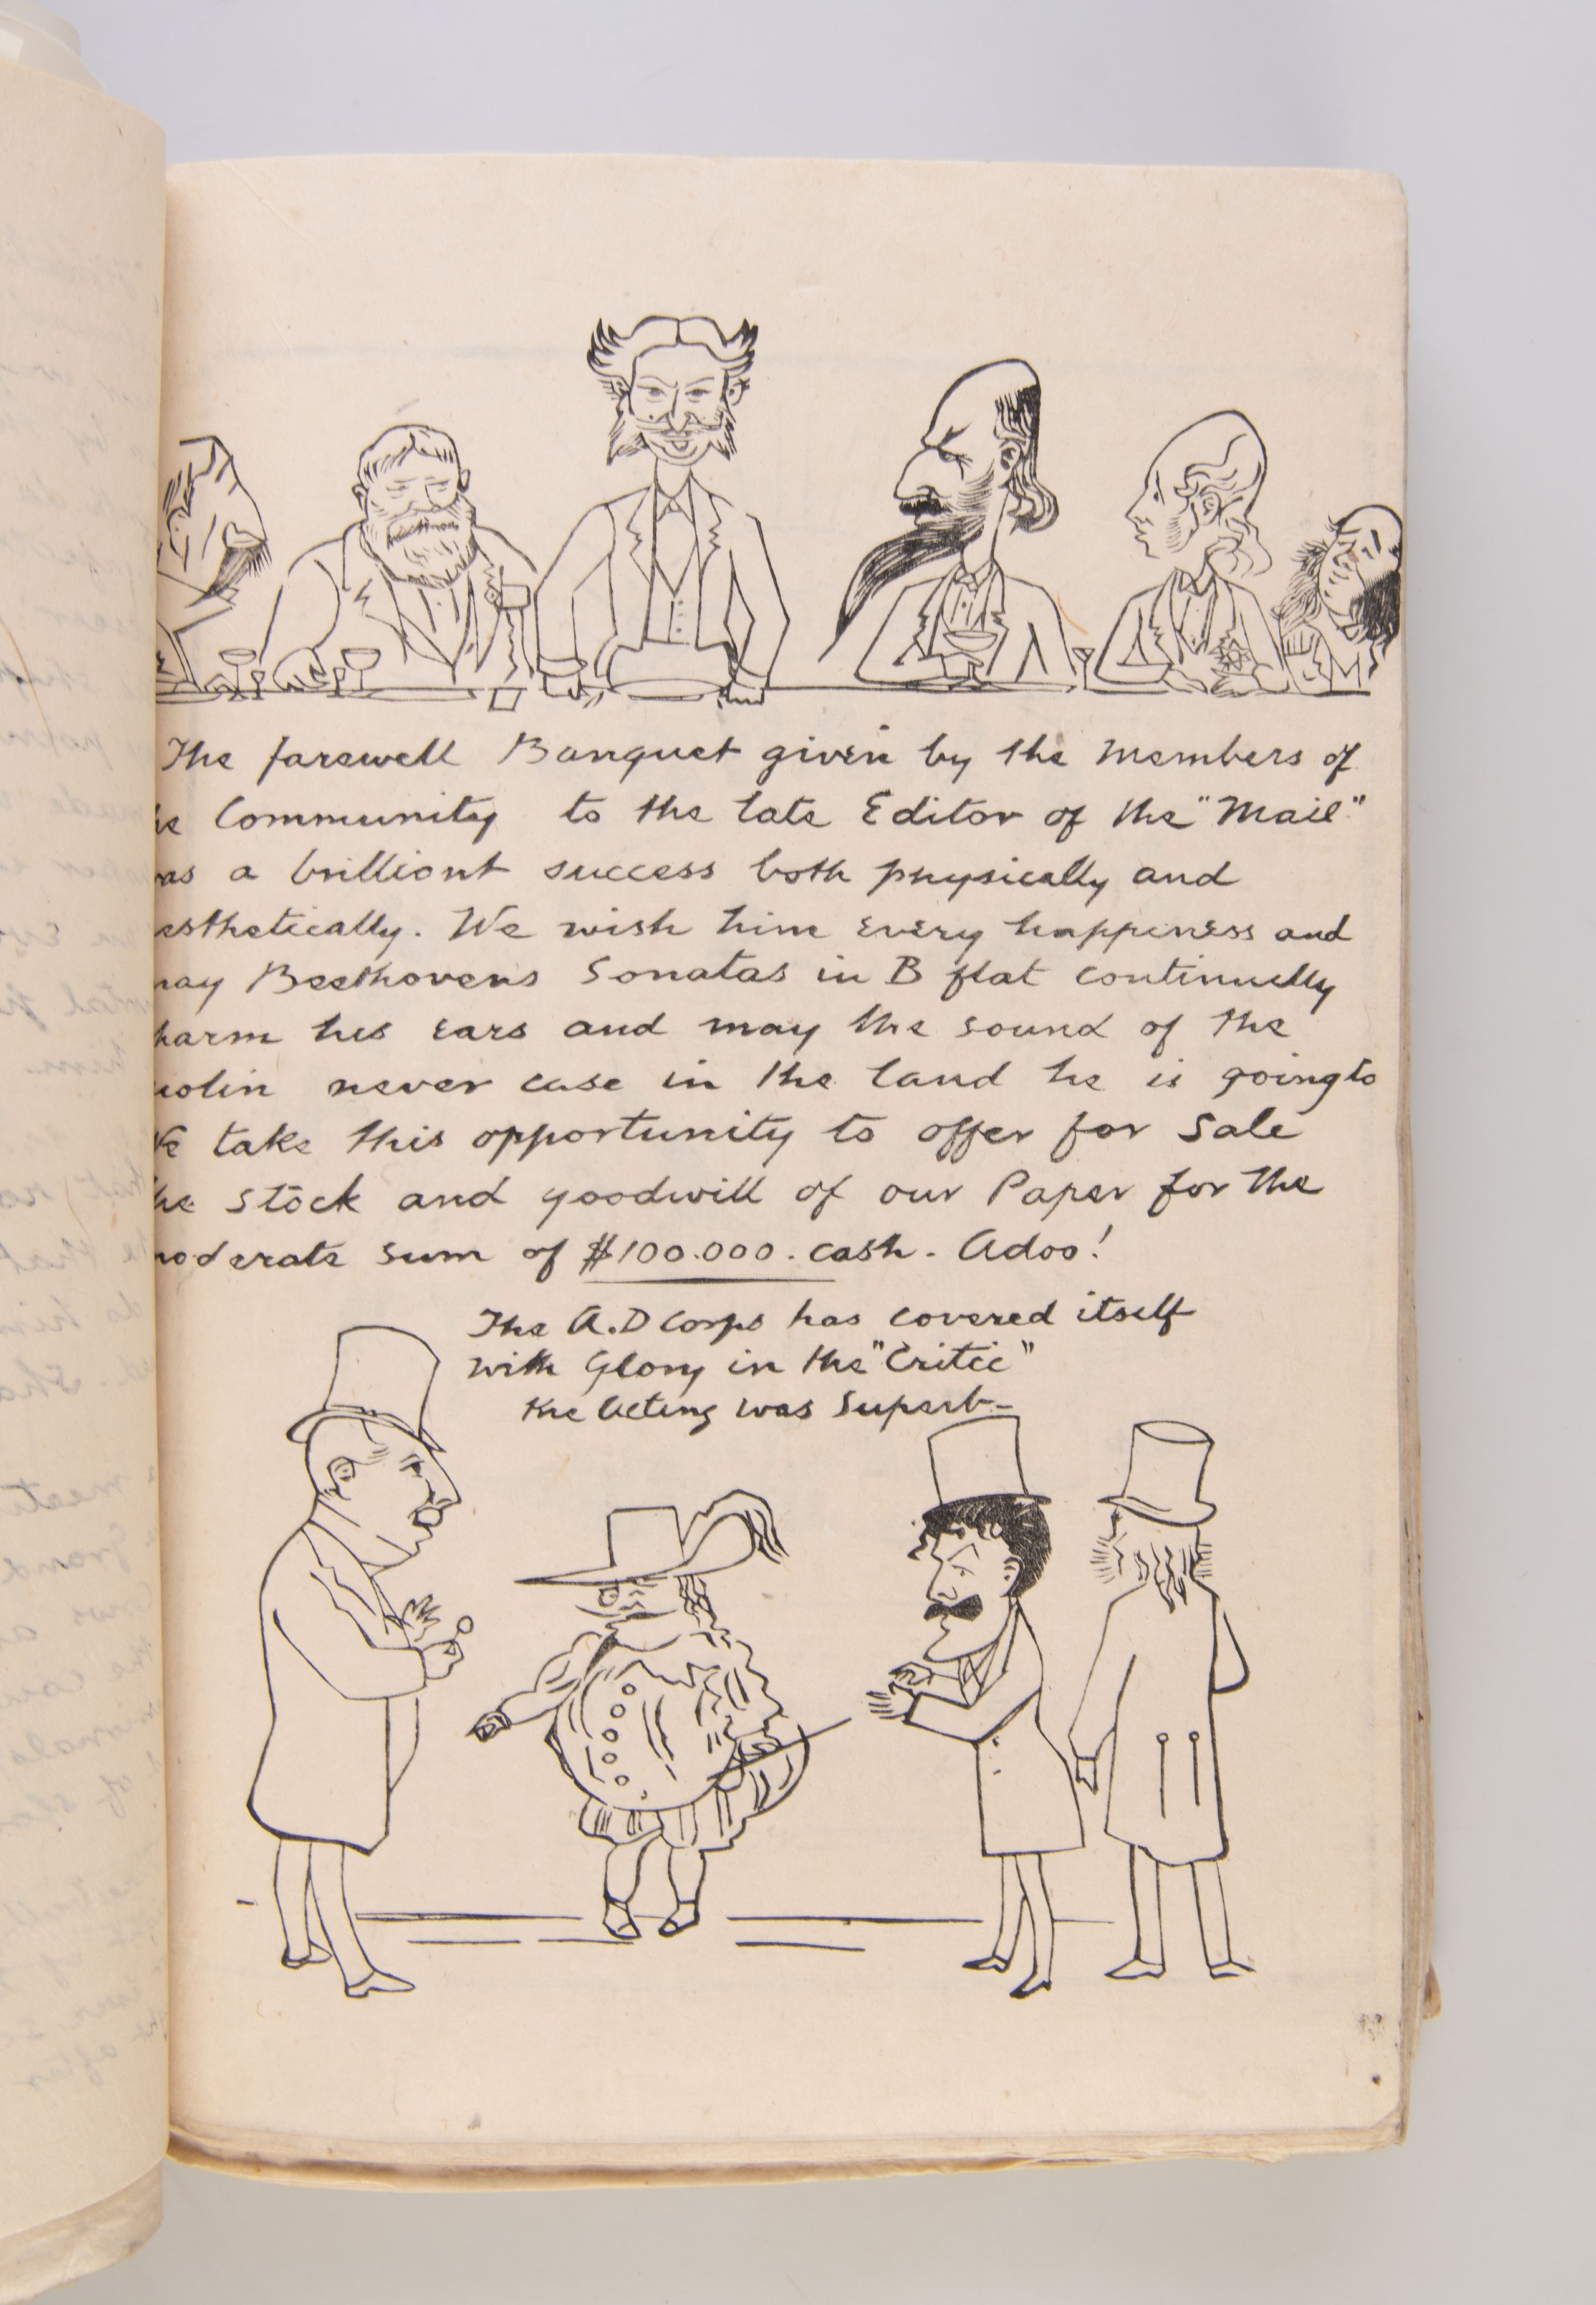 The farewell Banquet given by the Members of
he Community to the late Editor of the "Mail"
was a brilliant success both physically and
esthetically. We wish him every happiness and
may Beethovens Sonatas in B flat continually
harm his ears and may the sound of the
violin never case in the land he is going to
We take this opportunity to offer for Sale
he Stock and goodwill of our Paper for the
moderate sum of $100.000. cash. Adoo!
The A.D Corps has covered itself
with Glory in the "Critic"
the Acting was Superb-